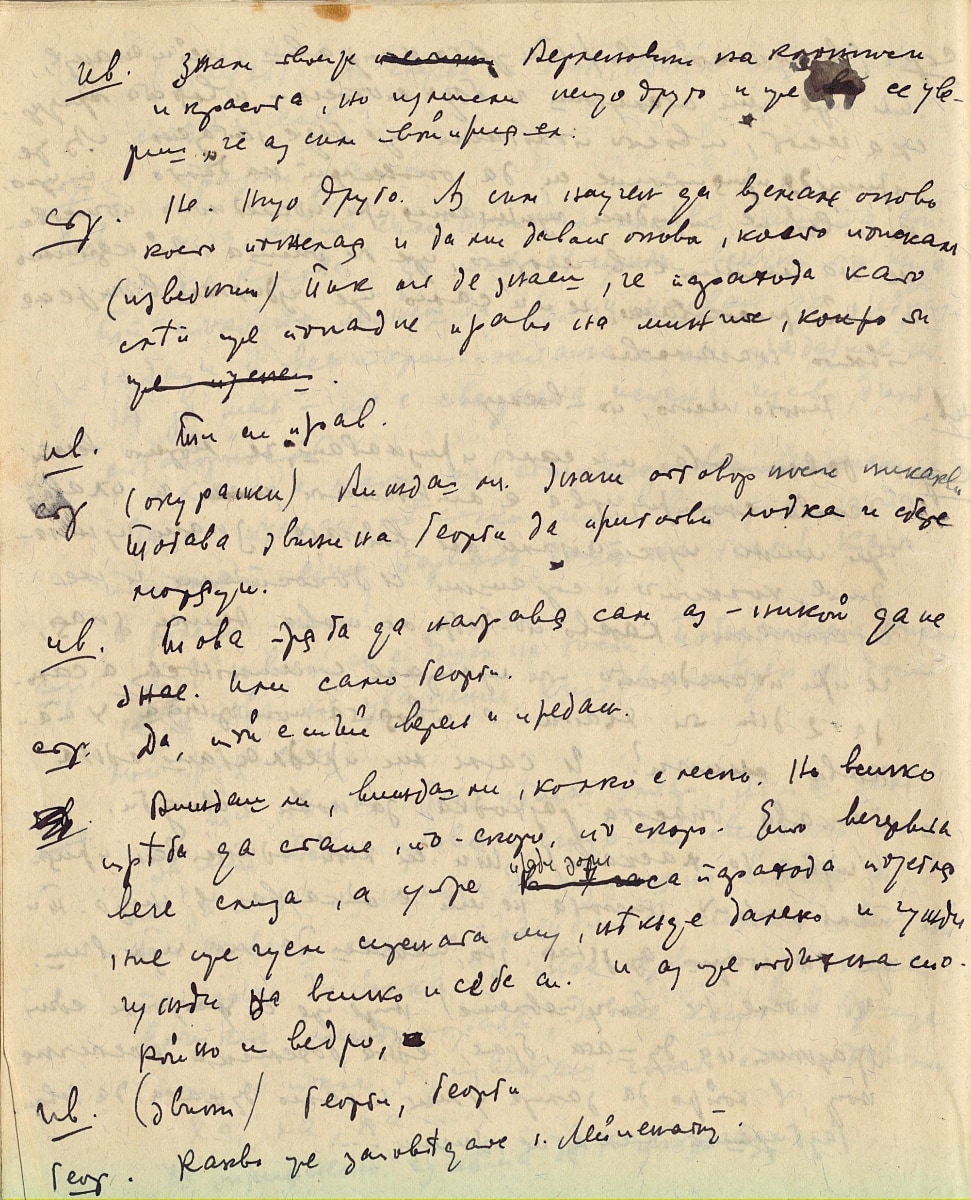 ив. Знам твоите Верленовни на
и красота, но измисли нещо друго и ще се уве-
риш, че аз съм твой приятел.
Не. Нищо друго. Аз съм научен да вземам онова
което пожелая и да ми дават онова, което поискам
(изведнъж) Пък от де знаеш, че парахода като
слѣп ще попадне право на мините, които ти
ще
ив. Ти си прав.
(окуражен) Виждаш ли. Значи отговор после никакви
Тогава звънни на Георги да приготви лодка и
ив. Това трябва да направя сам аз – никой да не
знае. Или само Георги.
Да, той е тъй верен и предан.
Виждаш ли, виждаш ли, колко е лесно. Но всичко
трѣба да стане по-скоро, по скоро. Ето вечерьта
вече слиза, а утре преди зори парахода
ние ще чуем сирената му, нѣкъде далеко и чужди
чужди на всичко и себе си. И аз ще отдъхна спо-
койно и ведро,
ив. (звъни) Георги, Георги
Геор. Какво ще заповѣдате г. Лейтенант.